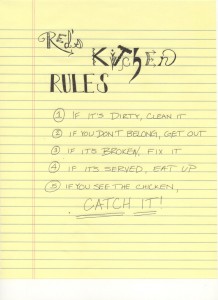 Red's
KitcheN
RULES
1 IF IT'S DIRTY, CLEAN IT
2 IF YOU DON'T BELONG, GET OUT
3 IF IT'S BROKEN, FIX IT
4 IF IT'S SERVED, EAT UP
5 IF YOU SEE THE CHICKEN,
CATCH IT!